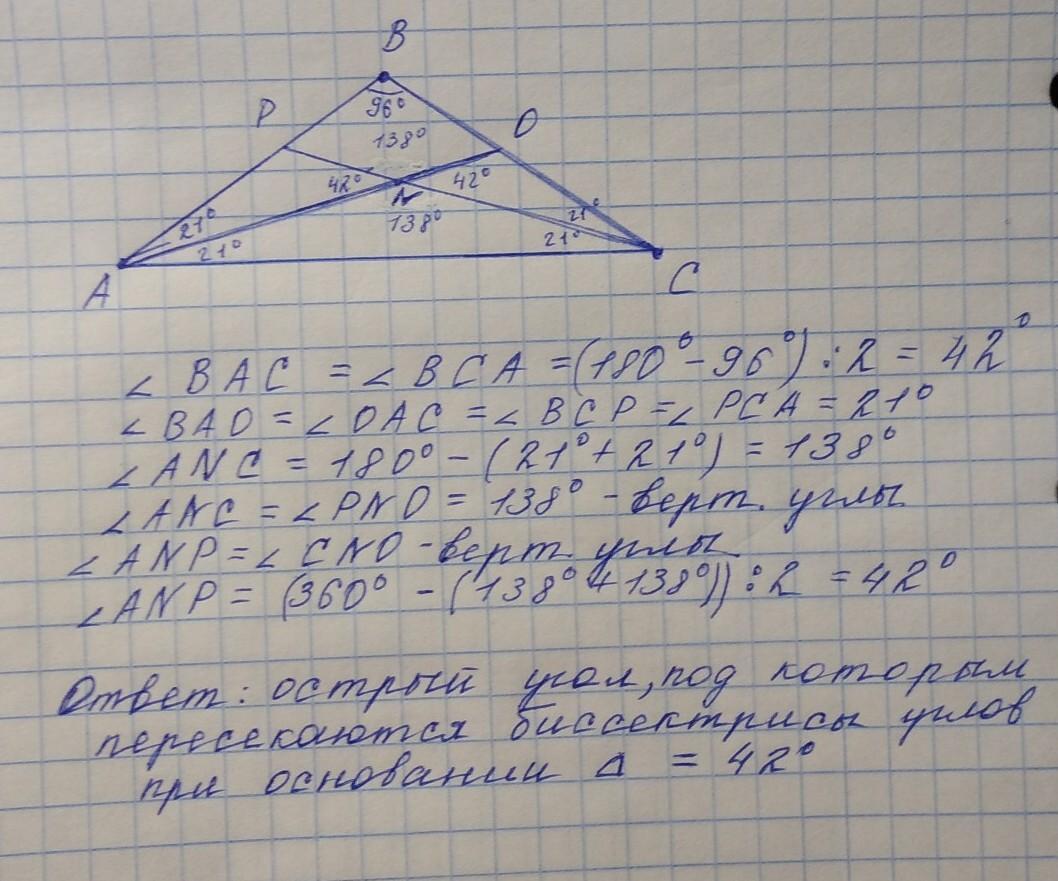 B
P
96°
O
138°
42°
42°
N
21°
138°
21°
21°
21°
A
C
∠ BAC = ∠ BCA = (180° - 96°) : 2 = 42°
∠ BAO = ∠ OAC = ∠ BCP = ∠ PCA = 21°
∠ ANC = 180° - (21° + 21°) = 138°
∠ ANC = ∠ PNO = 138° - верт. углы
∠ ANP = ∠ CNO - верт. углы
∠ ANP = (360° - (138° + 138°)) : 2 = 42°
Ответ: острый угол, под которым
пересекаются биссектрисы углов
при основании Δ = 42°